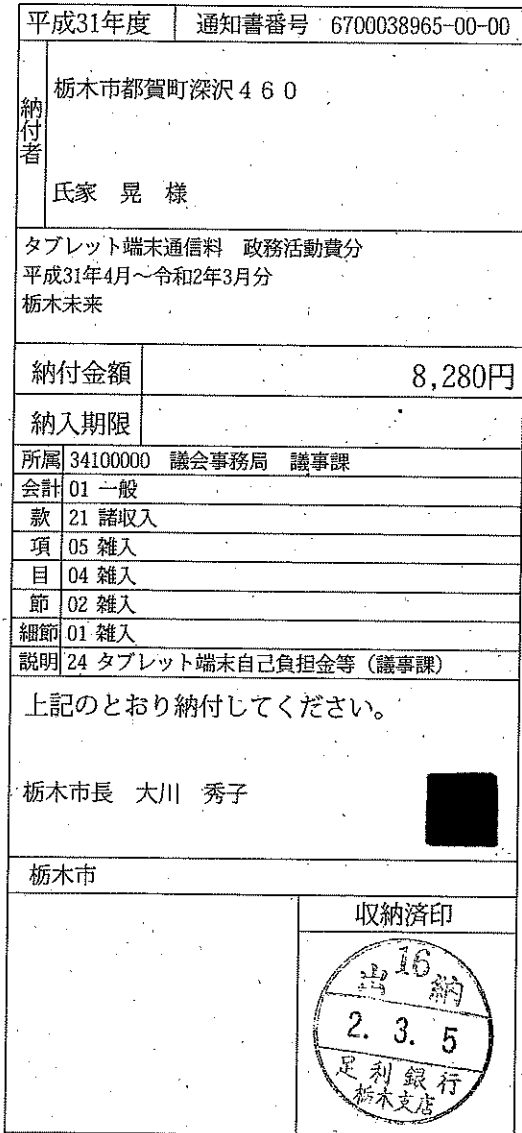 平成31年度 通知書番号 6700038965-00-00
納付者
栃木市都賀町深沢460
氏家 晃 様
タブレット端末通信料 政務活動費分
平成31年4月～令和2年3月分
栃木未来
納付金額 8,280円
納入期限
所属 34100000 議会事務局 議事課
会計 01 一般
款 21 諸収入
項 05 雑入
目 04 雑入
節 02 雑入
細節 01 雑入
説明 24 タブレット端末自己負担金等（議事課）
上記のとおり納付してください。
栃木市長 大川 秀子
栃木市
収納済印
16
出納
2. 3. 5
足利銀行
栃木支店